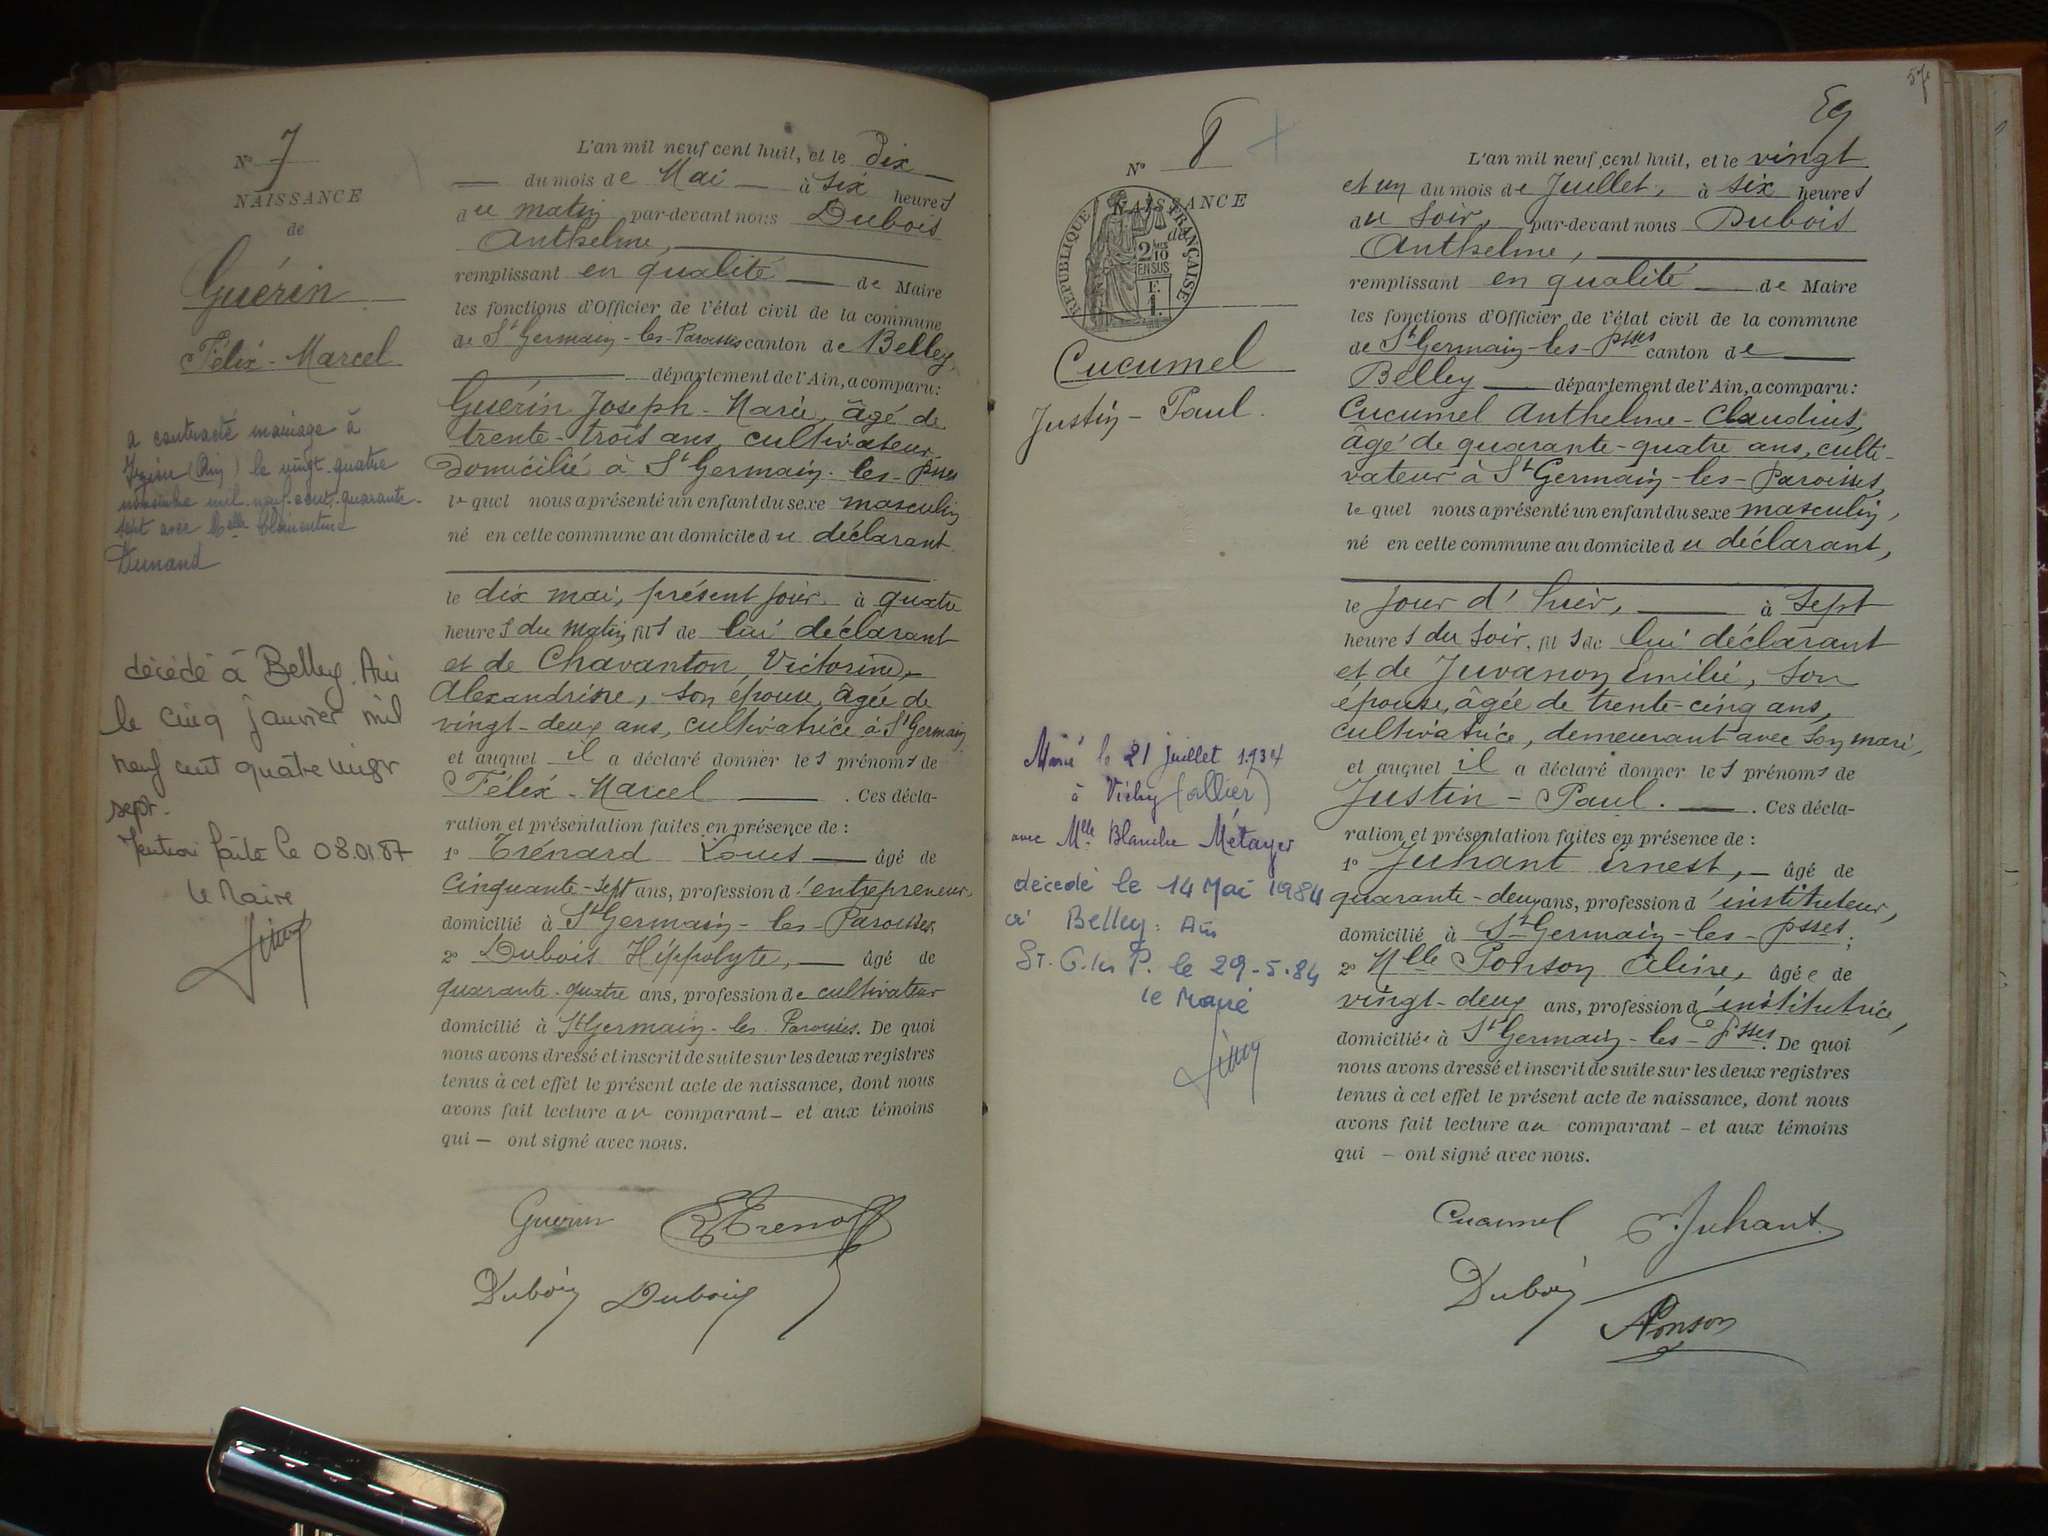 Nº 7
NAISSANCE
de
Guérin
Félix-Marcel
a contracté mariage à
(Ain) le vingt-quatre
novembre mil neuf cent quarante-
sept avec Clémentine
Dunand
décédé à Belley. Ain
le cinq janvier mil
neuf cent quatre vingt
sept.
Mention faite le 08.01.87
Le Maire
L'an mil neuf cent huit, et le dix
— du mois de Mai — à six heures
du matin par-devant nous Dubois
Anthelme,
remplissant en qualité — de Maire
les fonctions d'Officier de l'état civil de la commune
de St Germain-les-Paroisses canton de Belley
— département de l'Ain, a comparu:
Guérin Joseph-Marie, âgé de
trente-trois ans, cultivateur
Domicilié à St Germain-les-Psses
lequel nous a présenté un enfant du sexe masculin
né en cette commune au domicile du déclarant
le dix mai, présent jour à quatre
heures du matin, fils de lui déclarant
et de Chavanton Victorine,
Alexandrine, son épouse, âgée de
vingt-deux ans, cultivatrice à St Germain
et auquel il a déclaré donner les prénoms de
Félix-Marcel — . Ces décla-
ration et présentation faites en présence de :
1º Trénard Louis — âgé de
Cinquante-sept ans, profession d'entrepreneur,
domicilié à St Germain-les-Paroisses,
2º Dubois Hippolyte, — âgé de
quarante-quatre ans, profession de cultivateur
domicilié à St Germain-les Paroisses. De quoi
nous avons dressé et inscrit de suite sur les deux registres
tenus à cet effet le présent acte de naissance, dont nous
avons fait lecture au comparant — et aux témoins
qui — ont signé avec nous.
Guerin
Dubois Dubois
Nº 8
NAISSANCE
de
REPUBLIQUE FRANÇAISE
2/10
EN SUS
F.
1.
Cucumel
Justin-Paul.
Marié le 21 juillet 1934
à Vichy (Allier)
avec Mlle Blanche Métayer
décédé le 14 Mai 1984
à Belley. Ain
St. G. les P. le 29-5-84
le Maire
57
L'an mil neuf cent huit, et le vingt
et un du mois de Juillet, à six heures
du soir, par-devant nous Dubois
Anthelme,
remplissant en qualité — de Maire
les fonctions d'Officier de l'état civil de la commune
de St Germain-les-Psses canton de —
Belley — département de l'Ain, a comparu:
Cucumel Anthelme-Claudius,
âgé de quarante-quatre ans, culti-
vateur à St Germain-les-Paroisses,
lequel nous a présenté un enfant du sexe masculin,
né en cette commune au domicile du déclarant,
le jour d'hier, — à sept
heures du soir, fils de lui déclarant
et de Juvanon Emilie, son
épouse, âgée de trente-cinq ans,
cultivatrice, demeurant avec son mari,
et auquel il a déclaré donner les prénoms de
Justin-Paul. — . Ces décla-
ration et présentation faites en présence de :
1º Juhant Ernest, — âgé de
quarante-deux ans, profession d'instituteur,
domicilié à St Germain-les-Psses;
2º Mlle Ponson Aline, âgée de
vingt-deux ans, profession d'institutrice,
domiciliée à St Germain-les-Psses. De quoi
nous avons dressé et inscrit de suite sur les deux registres
tenus à cet effet le présent acte de naissance, dont nous
avons fait lecture au comparant — et aux témoins
qui — ont signé avec nous.
Cucumel Juhant
Dubois
APonson